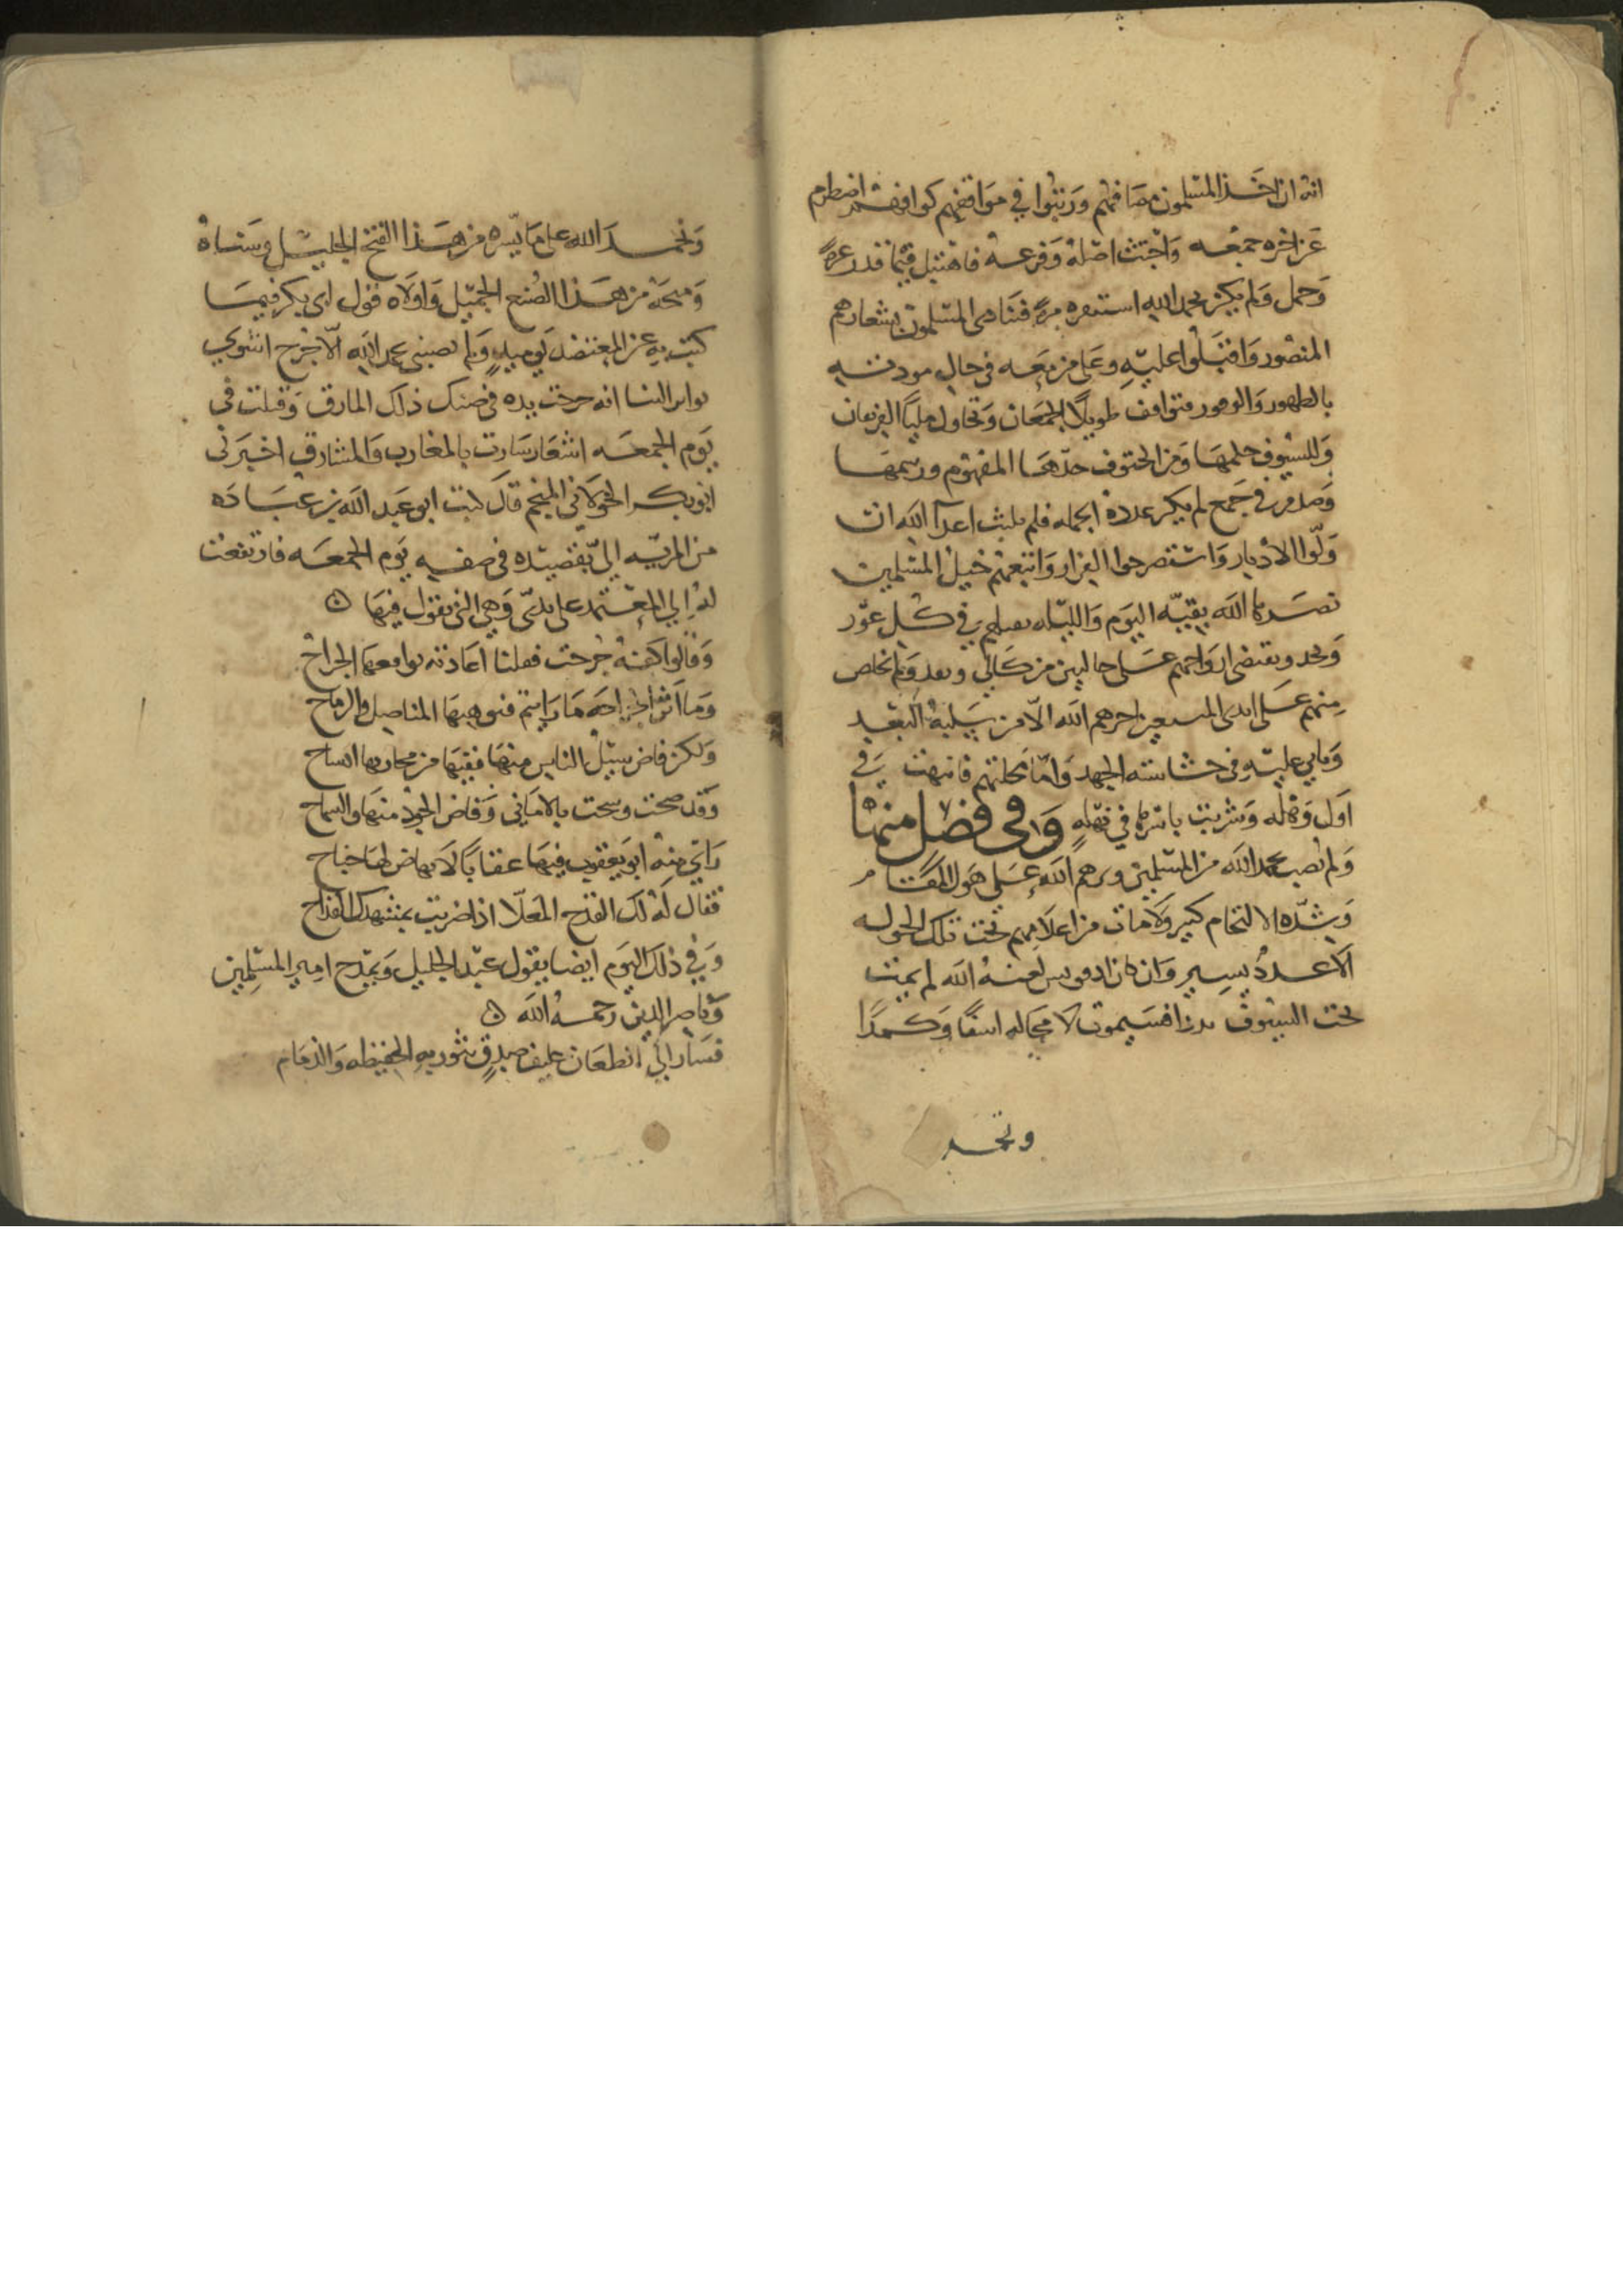 انه ان اخذ المسلمون مصافهم ورتبوا في مواقفهم كوافقهم اضطرم
عن اخره جمعه واجتث اصله وفرعه فاهتبل فيما قدر غرة
وحمل ولم يكن بحمد الله استنفره مرة فتنادى المسلمون بشعارهم
المنصور واقبلوا عليه وعلى من معه في حال
بالظهور والوفور فتواقف طويلا الجمعان وتحاول مليا الفريقان
وللسيوف حكمها ومن الحتوف حدها المفهوم ورسمها
وصدم في جمع لم يكن عدده الجملة فلم يلبث اعدآ الله ان
ولوا الادبار واستصرخوا الفرار واتبعهم خيل المسلمين
نصرها الله بقية اليوم والليلة تقتلهم في كل غور
ونجد وتقتضى ارواحهم على حالين من كالئ ونقد ولم يخلص
منهم على ايدى المتبعين اجرهم الله الا من سلبه البعد
وياتي عليه في حشاشته الجهد واما محلتهم فانتهبت في
اول وهلة وشربت باسرها في نهلة وفي فصل منها
ولم يصب بحمد الله من المسلمين وفرهم الله على هول المقام
وشدة الالتحام كبير ولا مات من اعلامهم تحت تلك الجولة
الا عدد يسير وان كان ادفونس لعنه الله لم يمت
تحت السيوف بددا فسيموت لا محالة اسفا وكمدا
ونحمد
ونحمد الله على ما يسره من هذا الفتح الجليل وسناه
ومنحه من هذا الصنع الجميل واولاه فول ابى بكر فيما
كتب به عن المعتضد يوميذ ولم تصبنى بحمد الله الا جرح اشوي
انه جرحت يده في ضنك ذلك المازق وقيلت في
يوم الجمعه اشعار سارت بالمغارب والمشارق اخبرنى
ابو بكر الخولاني المنجم قال كتب ابو عبد الله بن عباده
من المرية الي بقصيده في صفة يوم الجمعه فارتفعت
له الي المعتمد على يدى وهي التي يقول فيها ه
وقالوا كفه جرحت فقلنا اعاديه تواقعها الجراح
وما اثر الجراحه ما رايتم فتوهيها المناصل والرماح
ولكن فاض سيل الباس منها ففيها من مجاريها انسياح
وقد صحت وسحت بالاماني وفاض الجود منها والسماح
راي منه ابو يعقوب فيها عقابا لا يهاض لها جناح
فقال له لك القدح المعلا اذا ضربت بمشهدك القداح
وفي ذلك اليوم ايضا يقول عبد الجليل ويمدح امير المسلمين
وناصر الدين رحمه الله ه
فسار الي الطعان حليف صدق تثور به الحفيظه والذمام